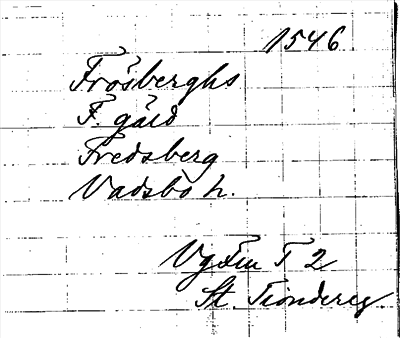 1546
Frösberghs
F. gård
Fredsberg
Vadsbo h.
Vg Fin T 2
St. Tiondereg.